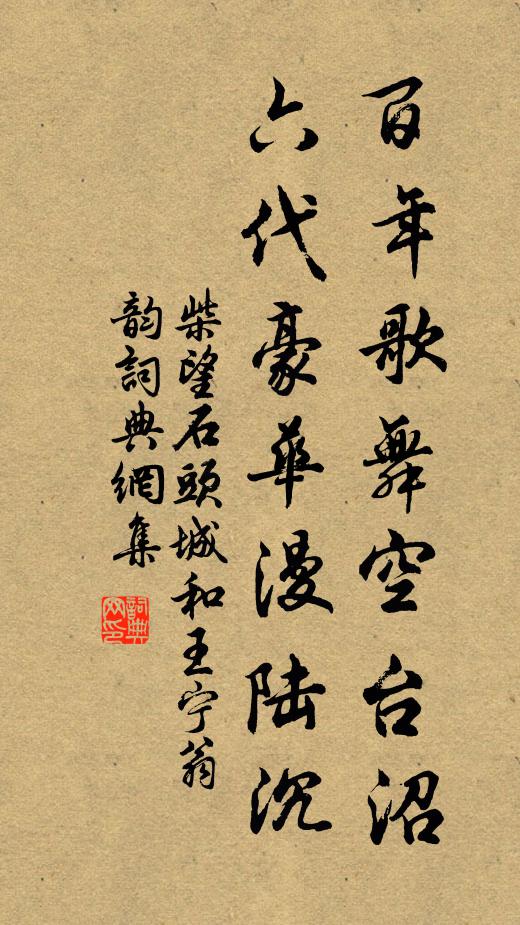 百年歌舞空台沼
六代豪華漫陆沉
柴望石頭城和王宁翁
韵詞典網集
詞典网印